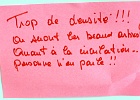 Trop de densité !!!
Où sont les beaux arbres
Quant à la circulation..
personne n'en parle !!